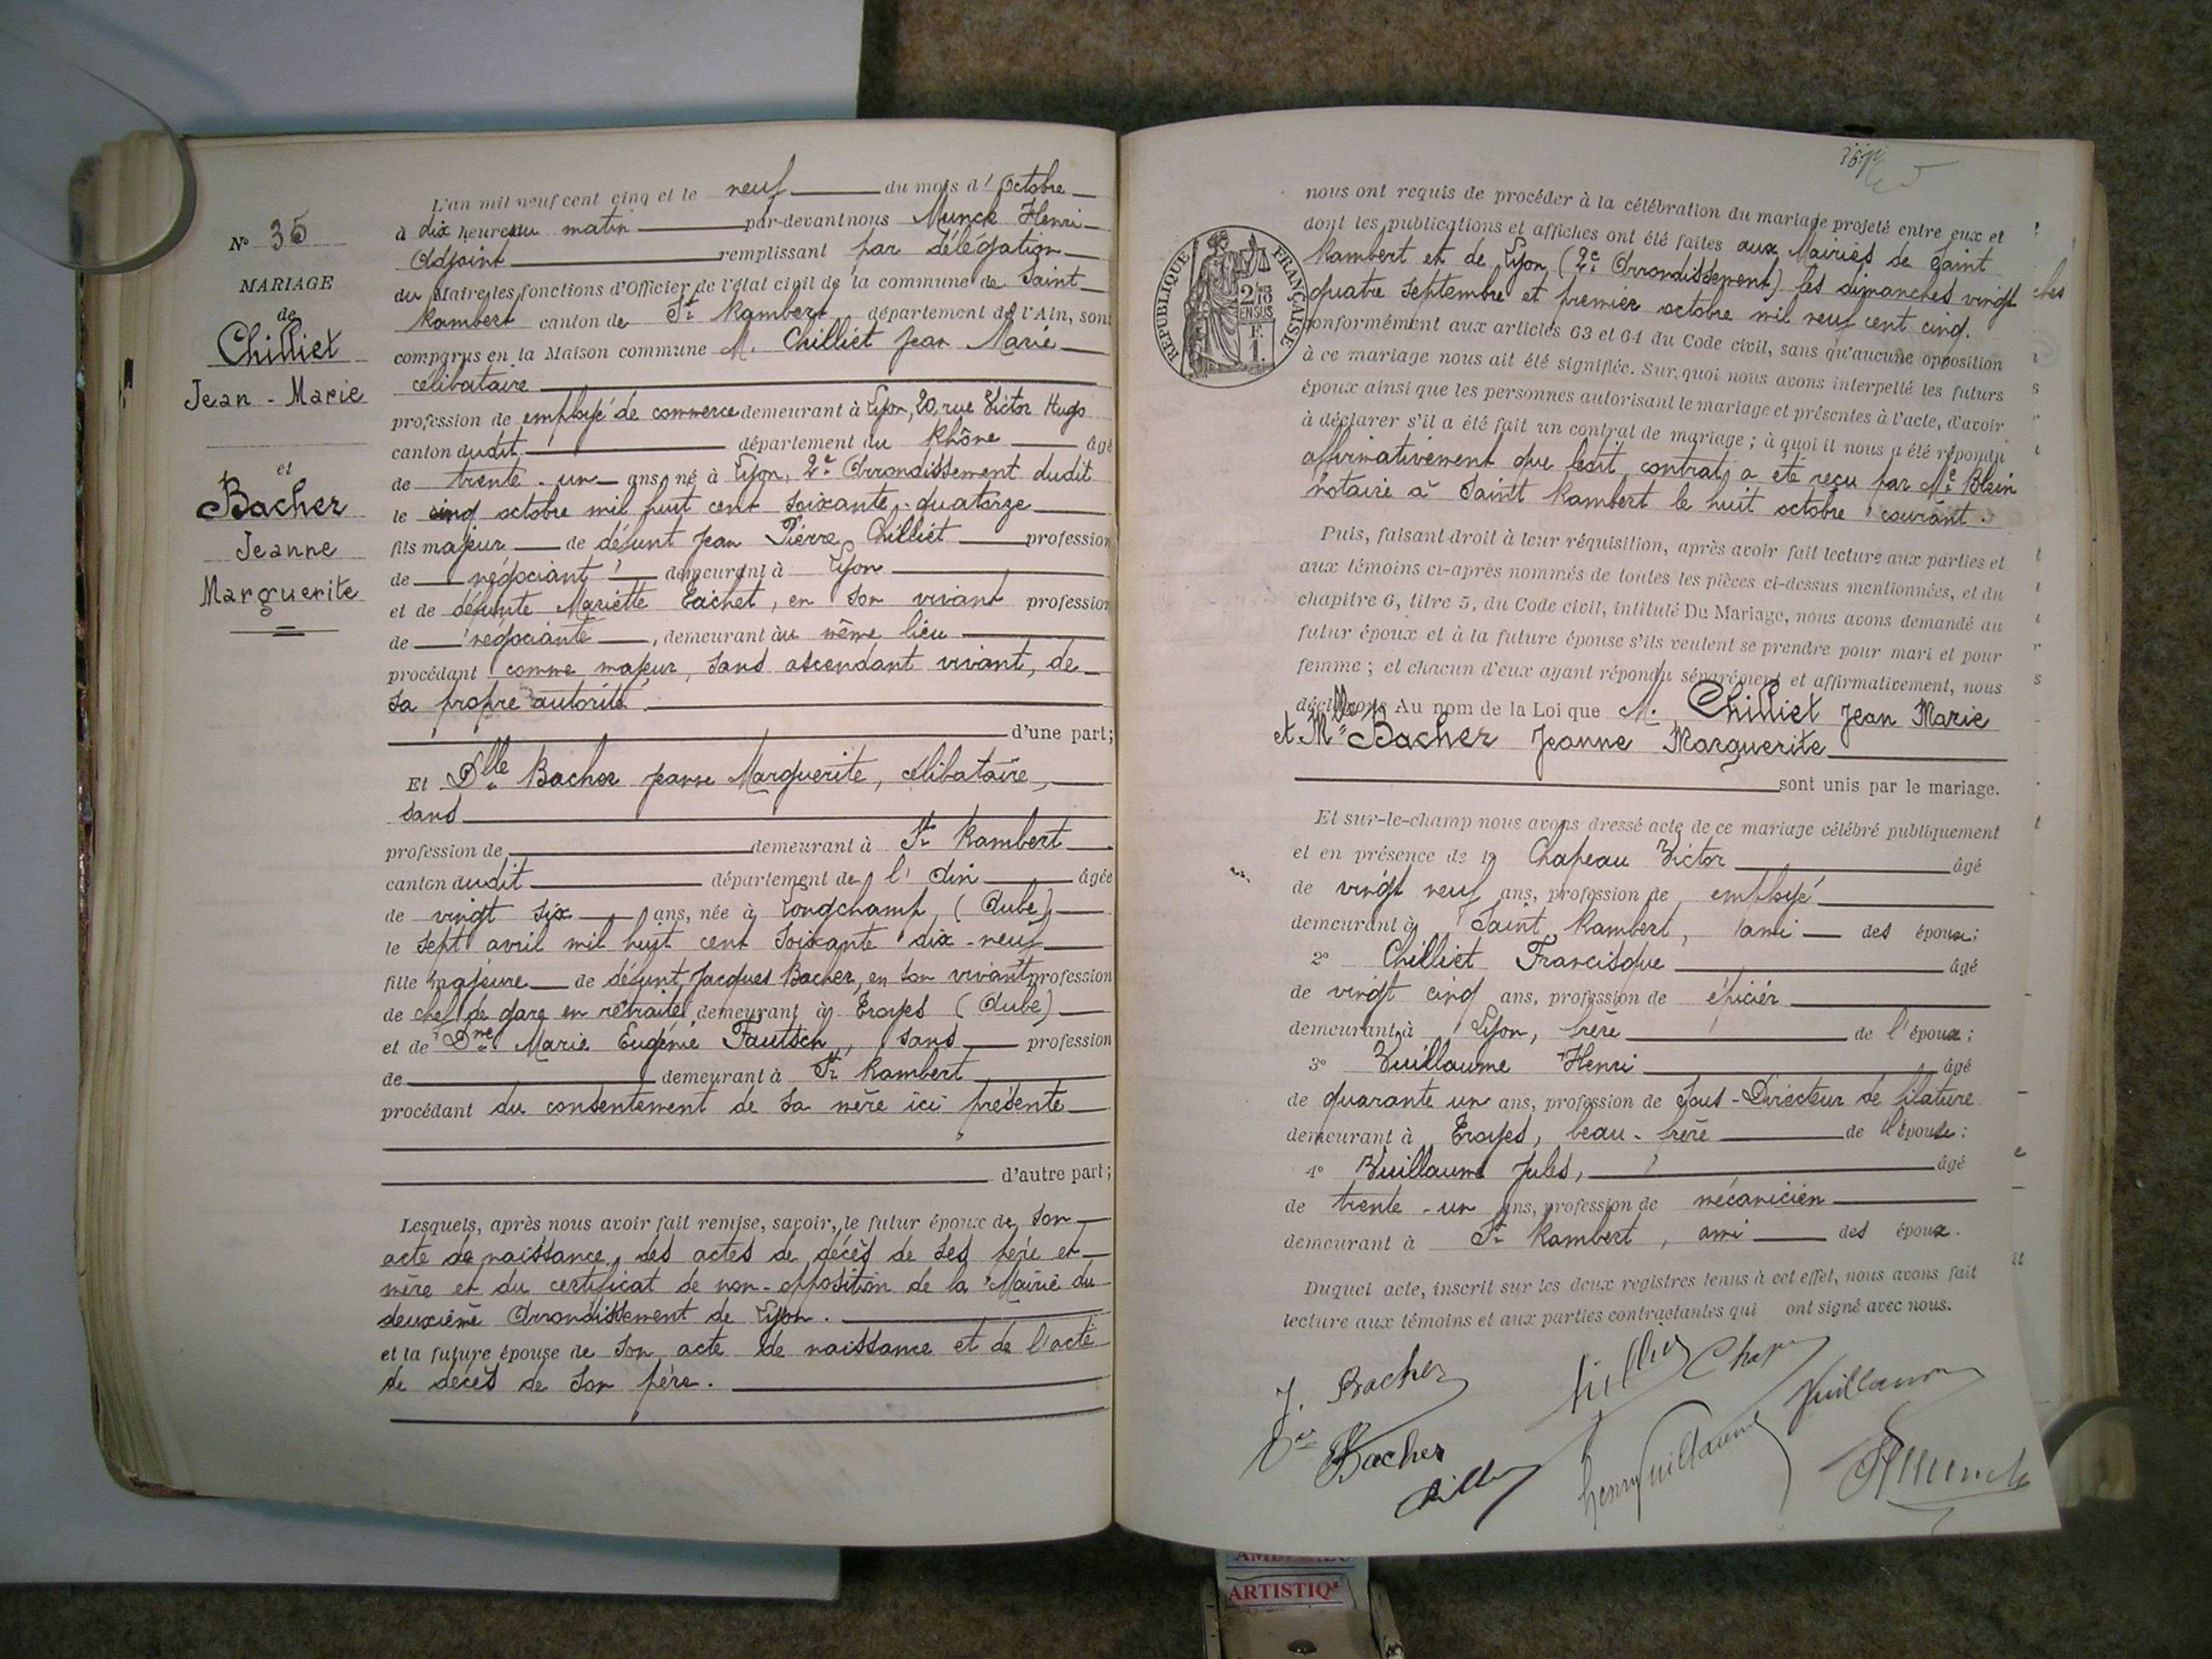 N° 35
MARIAGE
de
Chilliet
Jean - Marie
et
Bacher
Jeanne
Marguerite
L'an mil neuf cent cinq et le neuf du mois d'Octobre
à dix heures du matin par-devant nous Munck Henri
Adjoint remplissant par délégation
du Maire les fonctions d'Officier de l'état civil de la commune de Saint
Rambert canton de St Rambert département de l'Ain, sont
comparus en la Maison commune M. Chilliet Jean Marie
célibataire
profession de employé de commerce demeurant à Lyon, 20, rue Victor Hugo
canton dudit département du Rhône âgé
de trente-un ans, né à Lyon, 2e Arrondissement dudit
le cinq octobre mil huit cent soixante-quatorze
fils majeur de défunt Jean Pierre Chilliet profession
de négociant demeurant à Lyon
et de défunte Mariette Tachet, en son vivant profession
de négociante, demeurant au même lieu
procédant comme majeur, sans ascendant vivant, de
sa propre autorité.
d'une part;
Et Dlle Bacher Jeanne Marguerite, célibataire,
sans
profession de demeurant à St Rambert
canton dudit département de l'Ain âgée
de vingt six ans, née à Longchamp, (Aube)
le sept avril mil huit cent soixante dix-neuf
fille majeure de défunt Jacques Bacher, en son vivant profession
de chef de gare en retraite demeurant à Troyes (Aube)
et de Dme Marie Eugénie Fautsch, sans profession
de demeurant à St Rambert
procédant du consentement de sa mère ici présente
d'autre part;
Lesquels, après nous avoir fait remise, savoir, le futur époux de son
acte de naissance, des actes de décès de ses père et
mère et du certificat de non-opposition de la Mairie du
deuxième Arrondissement de Lyon.
et la future épouse de son acte de naissance et de l'acte
de décès de son père.
RÉPUBLIQUE FRANÇAISE
2/10
EN SUS
nous ont requis de procéder à la célébration du mariage projeté entre eux et
dont les publications et affiches ont été faites aux Mairies de Saint
Rambert et de Lyon (2e Arrondissement) les dimanches vingt
quatre septembre et premier octobre mil neuf cent cinq.
conformément aux articles 63 et 64 du Code civil, sans qu'aucune opposition
à ce mariage nous ait été signifiée. Sur quoi nous avons interpellé les futurs
époux ainsi que les personnes autorisant le mariage et présentes à l'acte, d'avoir
à déclarer s'il a été fait un contrat de mariage; à quoi il nous a été répondu
affirmativement que ledit contrat a été reçu par Me Blein
notaire à Saint Rambert le huit octobre courant.
Puis, faisant droit à leur réquisition, après avoir fait lecture aux parties et
aux témoins ci-après nommés de toutes les pièces ci-dessus mentionnées, et du
chapitre 6, titre 5, du Code civil, intitulé Du Mariage, nous avons demandé au
futur époux et à la future épouse s'ils veulent se prendre pour mari et pour
femme; et chacun d'eux ayant répondu séparément et affirmativement, nous
déclarons Au nom de la Loi que M. Chilliet Jean Marie
et Mlle Bacher Jeanne Marguerite
sont unis par le mariage.
Et sur-le-champ nous avons dressé acte de ce mariage célébré publiquement
et en présence de 1° Chapeau Victor âgé
de vingt neuf ans, profession de employé
demeurant à Saint Rambert, ami des époux;
2° Chilliet Francisque âgé
de vingt cinq ans, profession de épicier
demeurant à Lyon, frère de l'époux;
3° Vuillaume Henri âgé
de quarante un ans, profession de Sous-Directeur de filature
demeurant à Troyes, beau-frère de l'épouse:
4° Vuillaume Jules, âgé
de trente-un ans, profession de mécanicien
demeurant à St Rambert, ami des époux.
Duquel acte, inscrit sur les deux registres tenus à cet effet, nous avons fait
lecture aux témoins et aux parties contractantes qui ont signé avec nous.
J. Bacher
Bacher
Vuillaume
henry Vuillaume
HMunck
ARTISTIQ